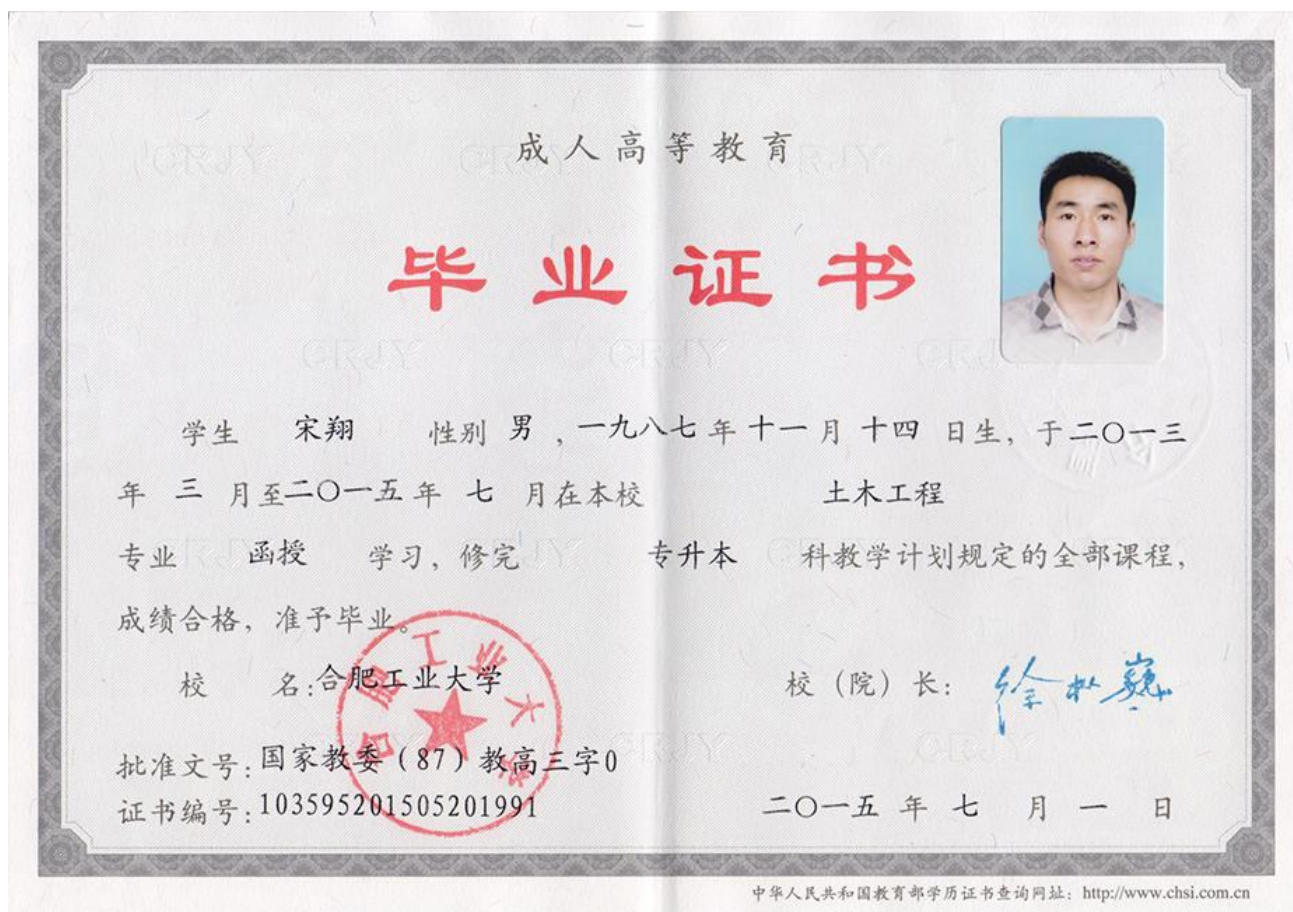 成人高等教育
毕业证书
学生 宋翔 性别 男 ，一九八七年十一月十四日生，于二〇一三
年 三 月至二〇一五年 七 月在本校 土木工程
专业 函授 学习，修完 专升本 科教学计划规定的全部课程，
成绩合格，准予毕业。
校 名：合肥工业大学 校（院）长：徐枞巍
批准文号：国家教委（87）教高三字0
证书编号：103595201505201991 二〇一五年 七 月 一 日
合肥工业大学
中华人民共和国教育部学历证书查询网址：http://www.chsi.com.cn